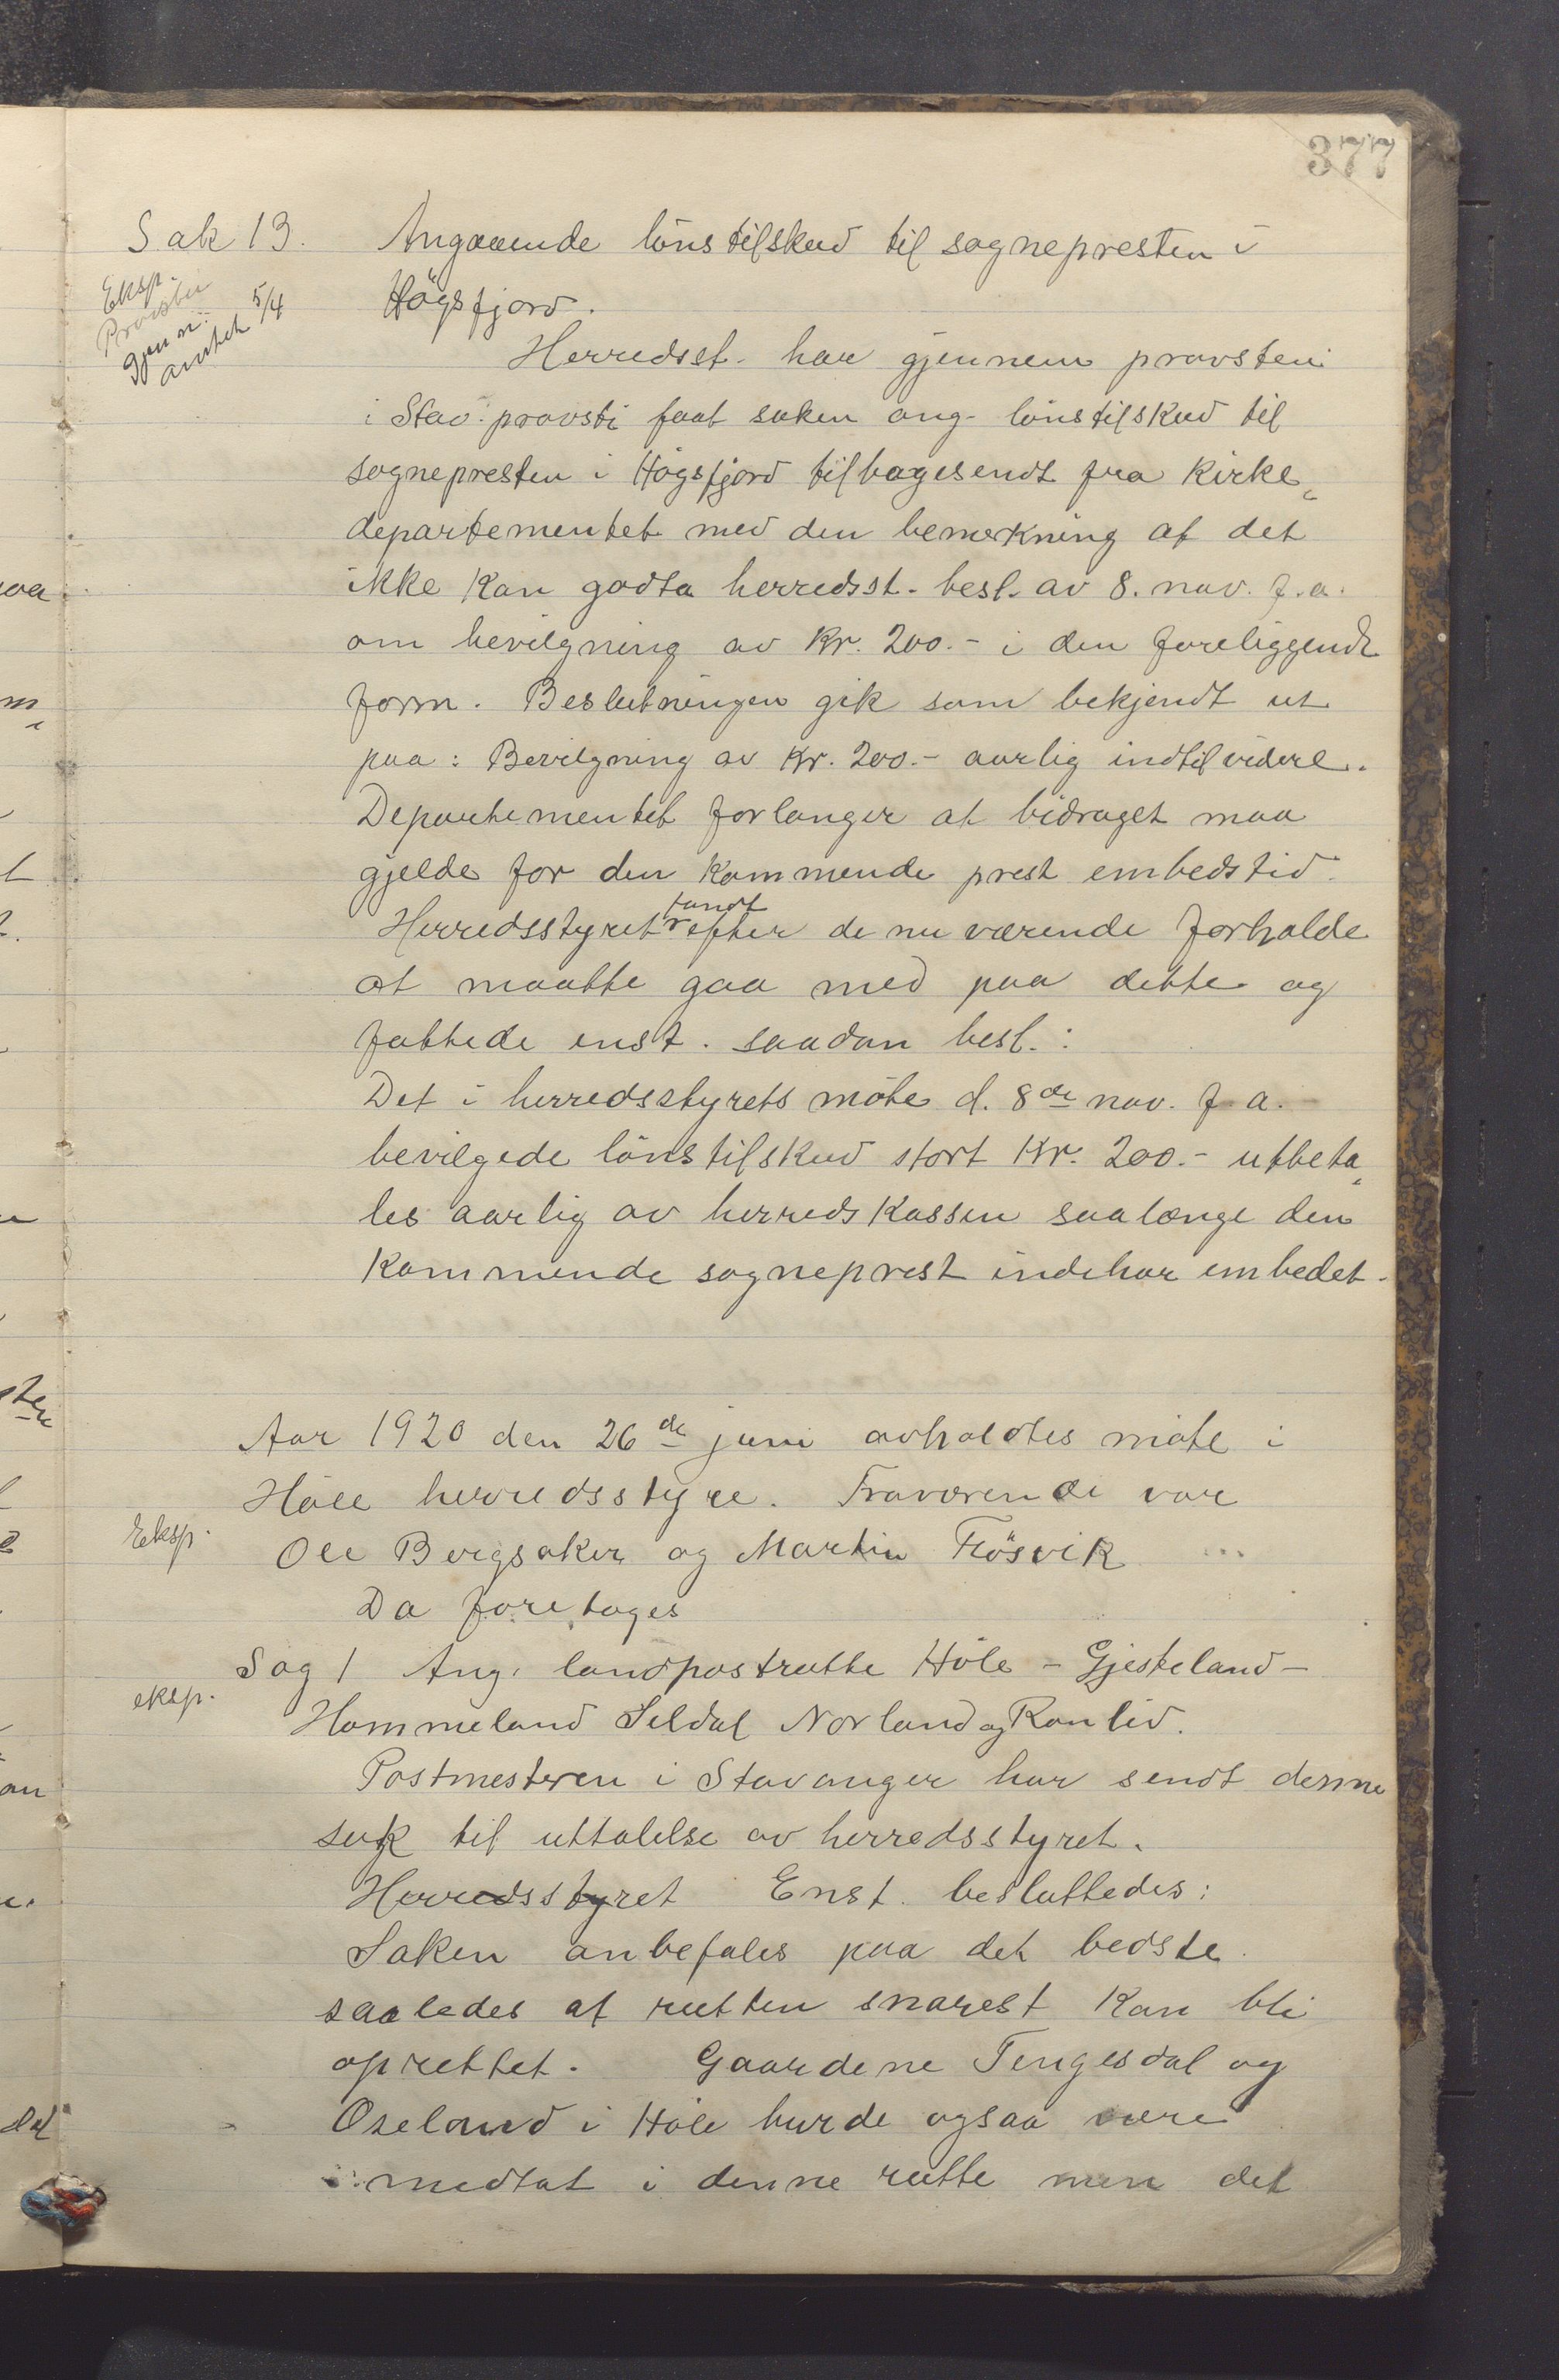 377
Sak 13. Angaaende lönstilskud til sognepresten i
Eksp.
Provsten
gjenn.
amtet 5/4
Högsfjord.
Herredsst. har gjennem provsten
i Stav. provsti faat saken ang. lönstilskud til
sognepresten i Högsfjord tilbagesendt fra Kirke-
departementet med den bemerkning at det
ikke kan godta herredsst. besl. av 8. nov. f.a.
om bevilgning av Kr. 200.- i den foreliggende
form. Beslutningen gik som bekjendt ut
paa: Bevilgning av Kr. 200.- aarlig indtil videre.
Departementet forlanger at bidraget maa
gjelde for den kommende prest embedstid.
Herredsstyret fandt efter de nu værende forholde
at maatte gaa med paa dette og
fattede enst. saadan besl.:
Det i herredsstyrets möte d. 8de nov. f.a.
bevilgede lönstilskud stort Kr. 200.- utbeta-
les aarlig av herredskassen saalænge den
kommende sogneprest indehar embedet.
Aar 1920 den 26de juni avholdtes möte i
Höle herredsstyre. Fraværende var
Eksp. Ole Bergsaker og Martin Frösvik
Da foretages
Sag 1 Ang. landpostrutte Höle - Gjesteland -
eksp. Hommeland Seldal Norland og Ranlid.
Postmesteren i Stavanger har sendt denne
sak til uttalelse av herredsstyret.
Herredsstyret Enst. besluttedes:
Saken anbefales paa det bedste
saaledes at rutten snarest kan bli
oprettet. Gaardene Tengesdal og
Oseland i Höle burde ogsaa være
medtat i denne rutte men det